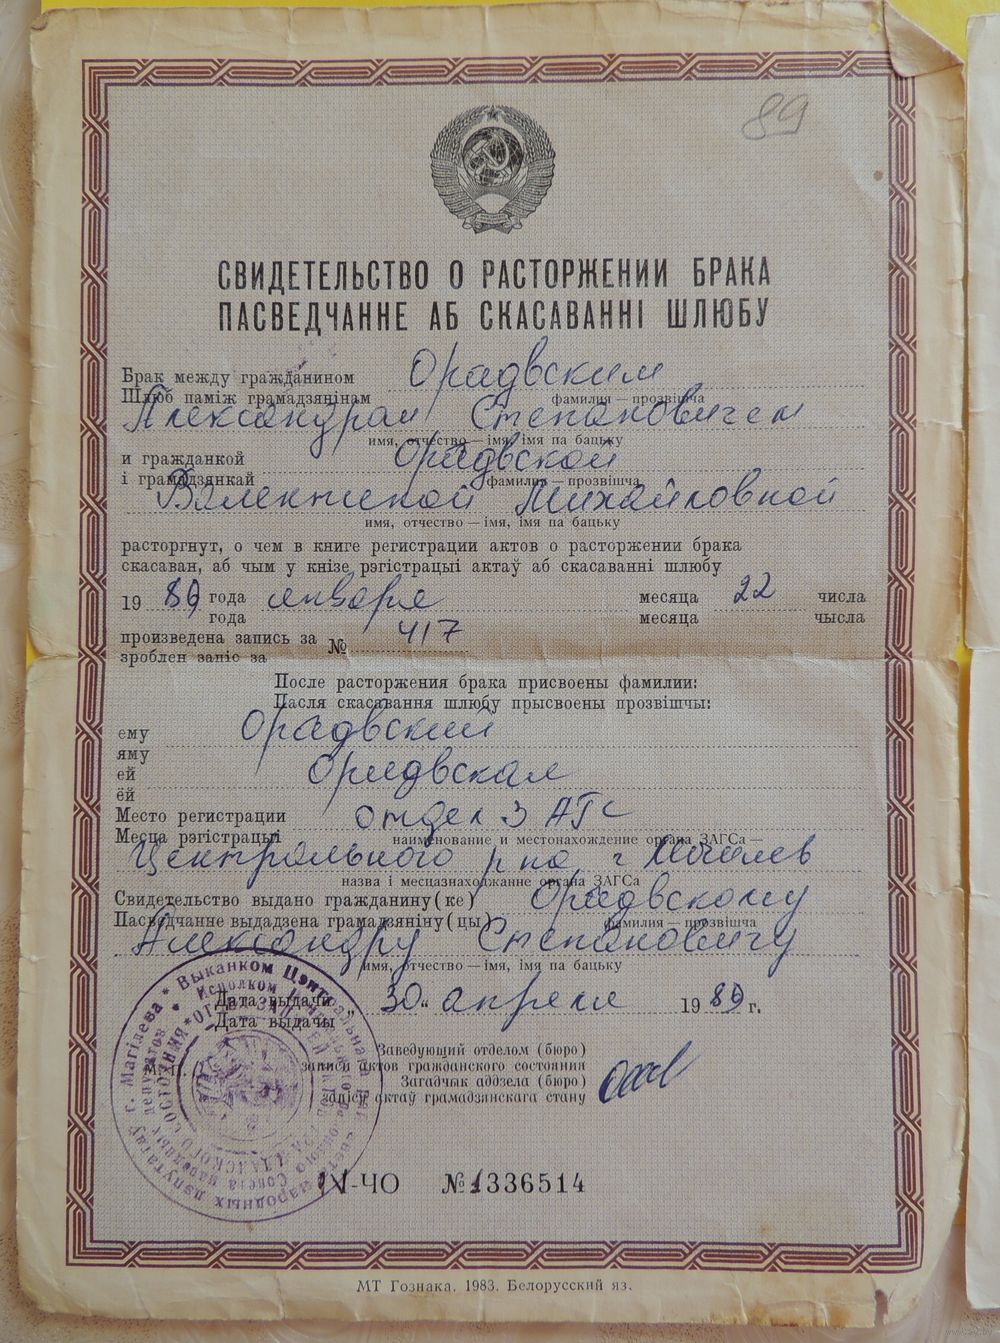 89
СВИДЕТЕЛЬСТВО О РАСТОРЖЕНИИ БРАКА
ПАСВЕДЧАННЕ АБ СКАСАВАННІ ШЛЮБУ
Брак между гражданином Орадвским
Шлюб паміж грамадзянінам фамилия — прозвішча
Александром Степановичем
имя, отчество — імя, імя па бацьку
и гражданкой Орадвской
і грамадзянкай фамилия — прозвішча
Валентиной Михайловной
имя, отчество — імя, імя па бацьку
расторгнут, о чем в книге регистрации актов о расторжении брака
скасаван, аб чым у кнізе рэгістрацыі актаў аб скасаванні шлюбу
19 89 года января месяца 22 числа
года месяца чысла
произведена запись за № 417
зроблен запіс за
После расторжения брака присвоены фамилии:
Пасля скасавання шлюбу прысвоены прозвішчы:
ему Орадвский
яму
ей Орадвская
ёй
Место регистрации отдел ЗАГС
Месца рэгістрацыі наименование и местонахождение органа ЗАГСа —
Центрального р на г Могилев
назва і месцазнаходжанне органа ЗАГСа
Свидетельство выдано гражданину(ке) Орадвскому
Пасведчанне выдадзена грамадзяніну(цы) фамилия — прозвішча
Александру Степановичу
имя, отчество — імя, імя па бацьку
Дата выдачи „30“ апреля 1989 г.
Дата выдачы
Заведующий отделом (бюро)
М. П. записи актов гражданского состояния
Загадчык аддзела (бюро)
запісу актаў грамадзянскага стану
-ЧО № 1336514
МТ Гознака. 1983. Белорусский яз.